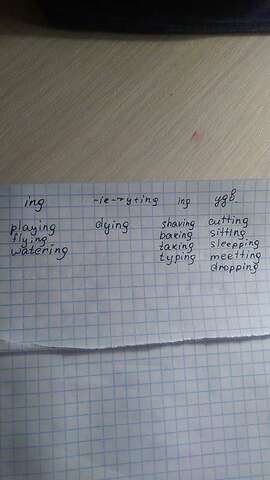 ing -ie→y+ing ing удв.
playing dying shaving cutting
flying baking sitting
watering taking sleepping
typing meetting
dropping